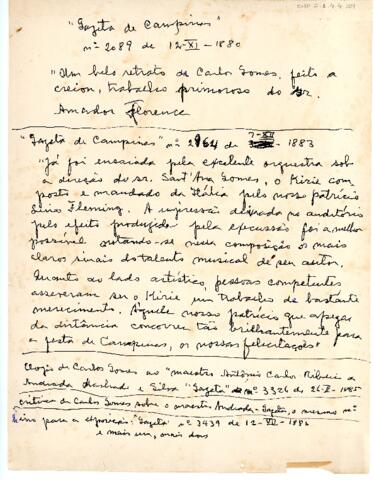 "Gazeta de Campinas"
nº 2089 de 12-XI-1880
"Um belo retrato de Carlos Gomes, feito a
creion, trabalho primoroso do sr.
Amador Florence
"Gazeta de Campinas" nº 2964 de 7-XII-1883
"Já foi ensaiada pela excelente orquestra sob
a direção do sr. Sant'Ana Gomes, o Kirie com-
posto e mandado da Itália pelo nosso patrício
Lino Fleming. A impressão deixada no auditório
pelo efeito produzido pela execussão foi a melhor
possivel notando-se nessa composição os mais
claros sinais do talento musical de seu autor.
Quanto ao lado artístico, pessoas competentes
asseveram ser o Kirie um trabalho de bastante
merecimento. Áquele nosso patrício que apezar
da distância concorreu tão brilhantemente para
a festa de Campinas, os nossas felicitações"
Elogio de Carlos Gomes ao "maestro Antônio Carlos Ribeiro de
Andrada Machado e Silva "Gazeta" nº 3326 de 26-II-1885
crítica de Carlos Gomes sobre o maestro Andrada-Gazeta, o mesmo nº
Hino para a exposição: "Gazeta" nº 3439 de 12-VII-188
e mais um, mais dos